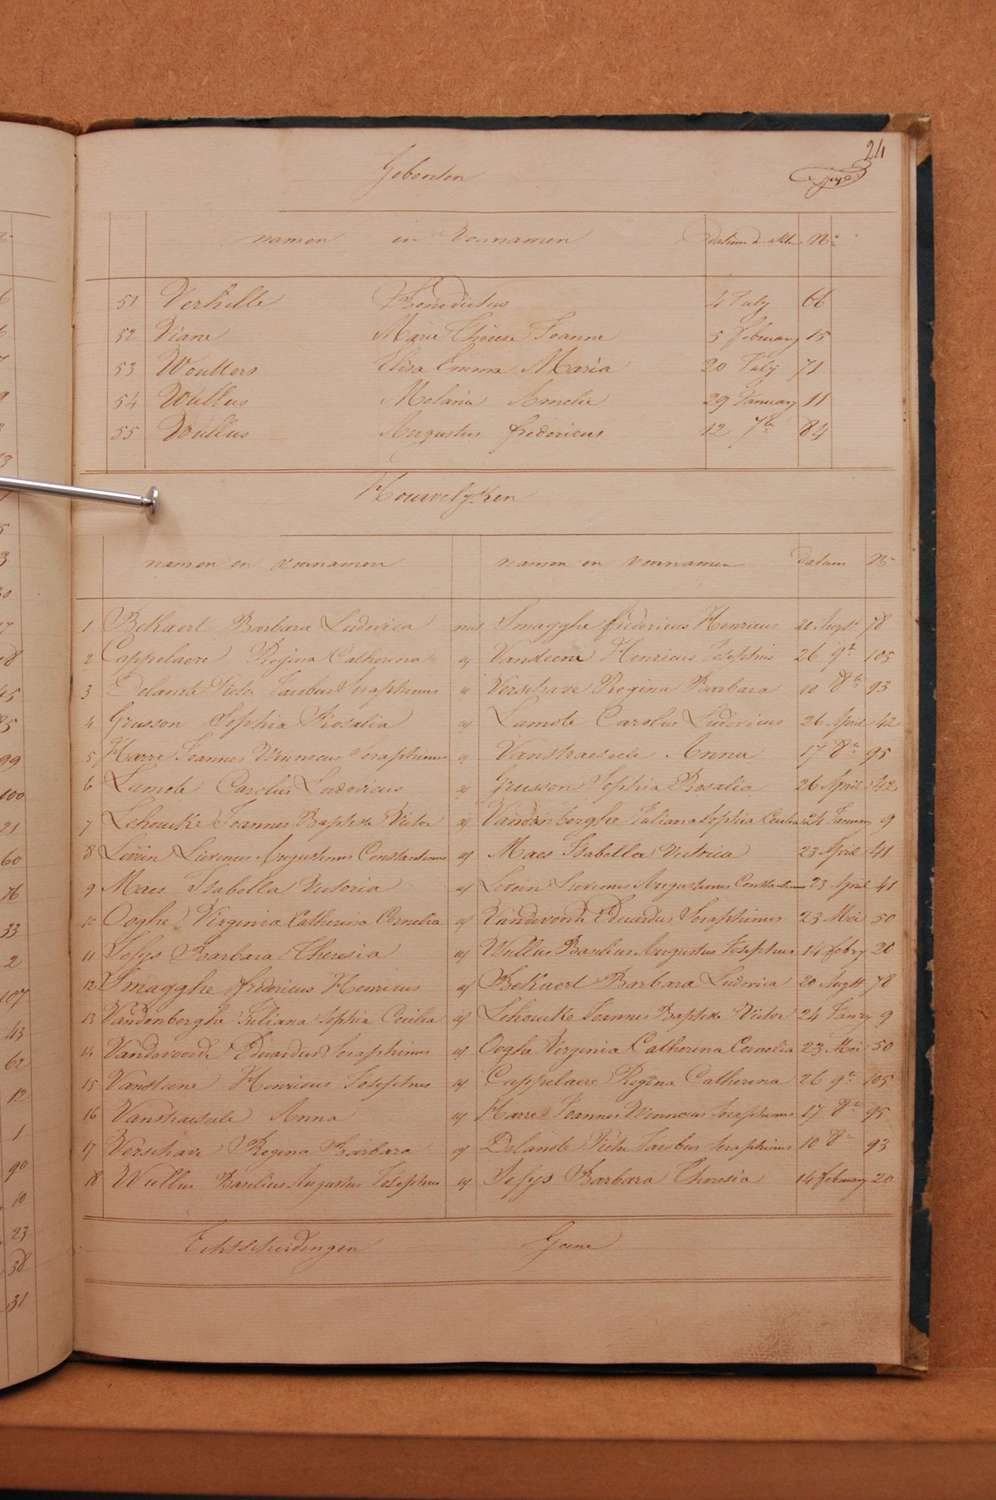 24
Geboorten
namen en Voornamen Datum d. akte N°
51 Verhille Benedictus 4 July 66
52 Viane Marie Thérese Joanna 5 february 15
53 Wouters Elisa Emma Maria 20 July 71
54 Wullus Melania Amelia 29 January 11
55 Wullus Augustus fredericus 12 7b 84
Houwelyken
namen en voornamen namen en voornamen Datum N°
1 Bekaert Barbara Ludovica met Smagghe fredericus Henricus Augt 78
2 Cappelaere Regina Catherina Henricus Josephus 26 9r 105
3 Jacobus Seraphinus Verschave Regina Barbara 10 8b 93
4 Grusson Sophia Rosalia Lamote Carolus Ludovicus 26 April 42
5 Harre Joannes Venancus Seraphinus Vanstraesele Anna 17 8b 95
6 Lamote Carolus Ludovicus Grusson Sophia Rosalia 26 April 42
7 Lehoucke Joannes Baptista Victor Vandenberghe Juliana Sophia Cecilia 24 January 9
8 Livinus Augustinus Constantinus Maes Isabella Victoria 23 April 41
9 Maes Isabella Victoria Livinus Augustinus Constantinus 23 April 41
10 Ooghe Virginia Catherina Cornelia Vandevoorde Eduardus Seraphinus 23 Mei 50
11 Josys Barbara Theresia Wullus Basilius Augustus Josephus 14 febry 20
12 Smagghe fredericus Henricus Bekaert Barbara Ludovica 20 Augt 78
13 Vandenberghe Juliana Sophia Cecilia Lehoucke Joannes Baptista Victor 24 Janry 9
14 Vandevoorde Eduardus Seraphinus Ooghe Virginia Catherina Cornelia 23 Mei 50
15 Henricus Josephus Cappelaere Regina Catherina 26 9r 105
16 Vanstraesele Anna Harre Joannes Venancus Seraphinus 17 8b 95
17 Verschave Regina Barbara Jacobus Seraphinus 10 8b 93
18 Wullus Basilius Augustus Josephus Josys Barbara Theresia 14 february 20
Echtscheidingen Geene